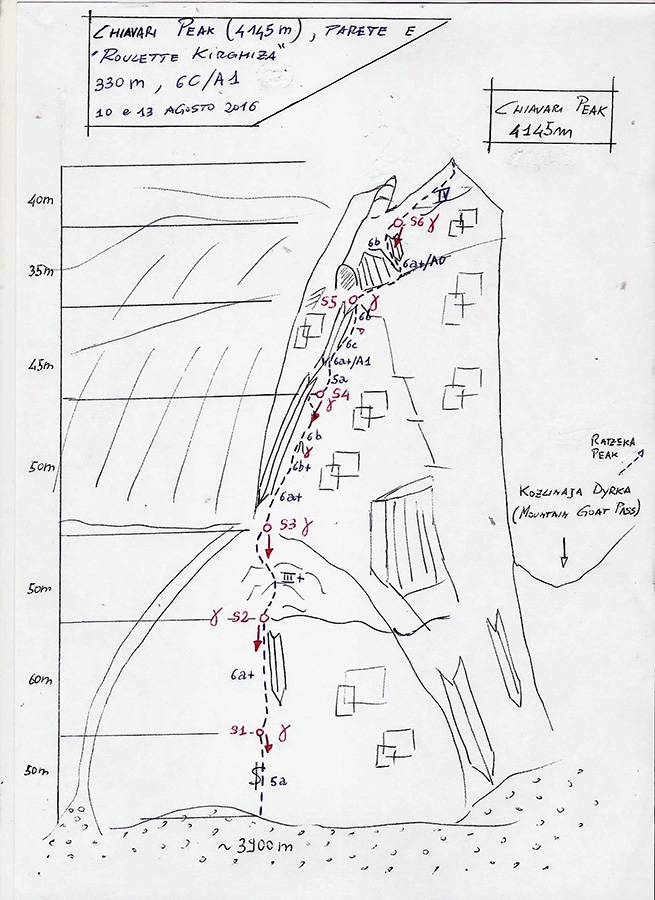 CHIAVARI PEAK (4145m), PARETE E
"ROULETTE KIRGHIZA"
330m, 6C/A1
10 e 13 AGOSTO 2016
CHIAVARI PEAK
4145m
40m
IV
S6
6b
35m
6a+/A0
S5
6b
6c
45m
6a+/A1
5a
S4
6b
6b+
50m
6a+
RATZEKA
PEAK
KOZLINAJA DYRKA
(MOUNTAIN GOAT PASS)
S3
50m
III+
S2
60m
6a+
S1
50m
5a
~3900m